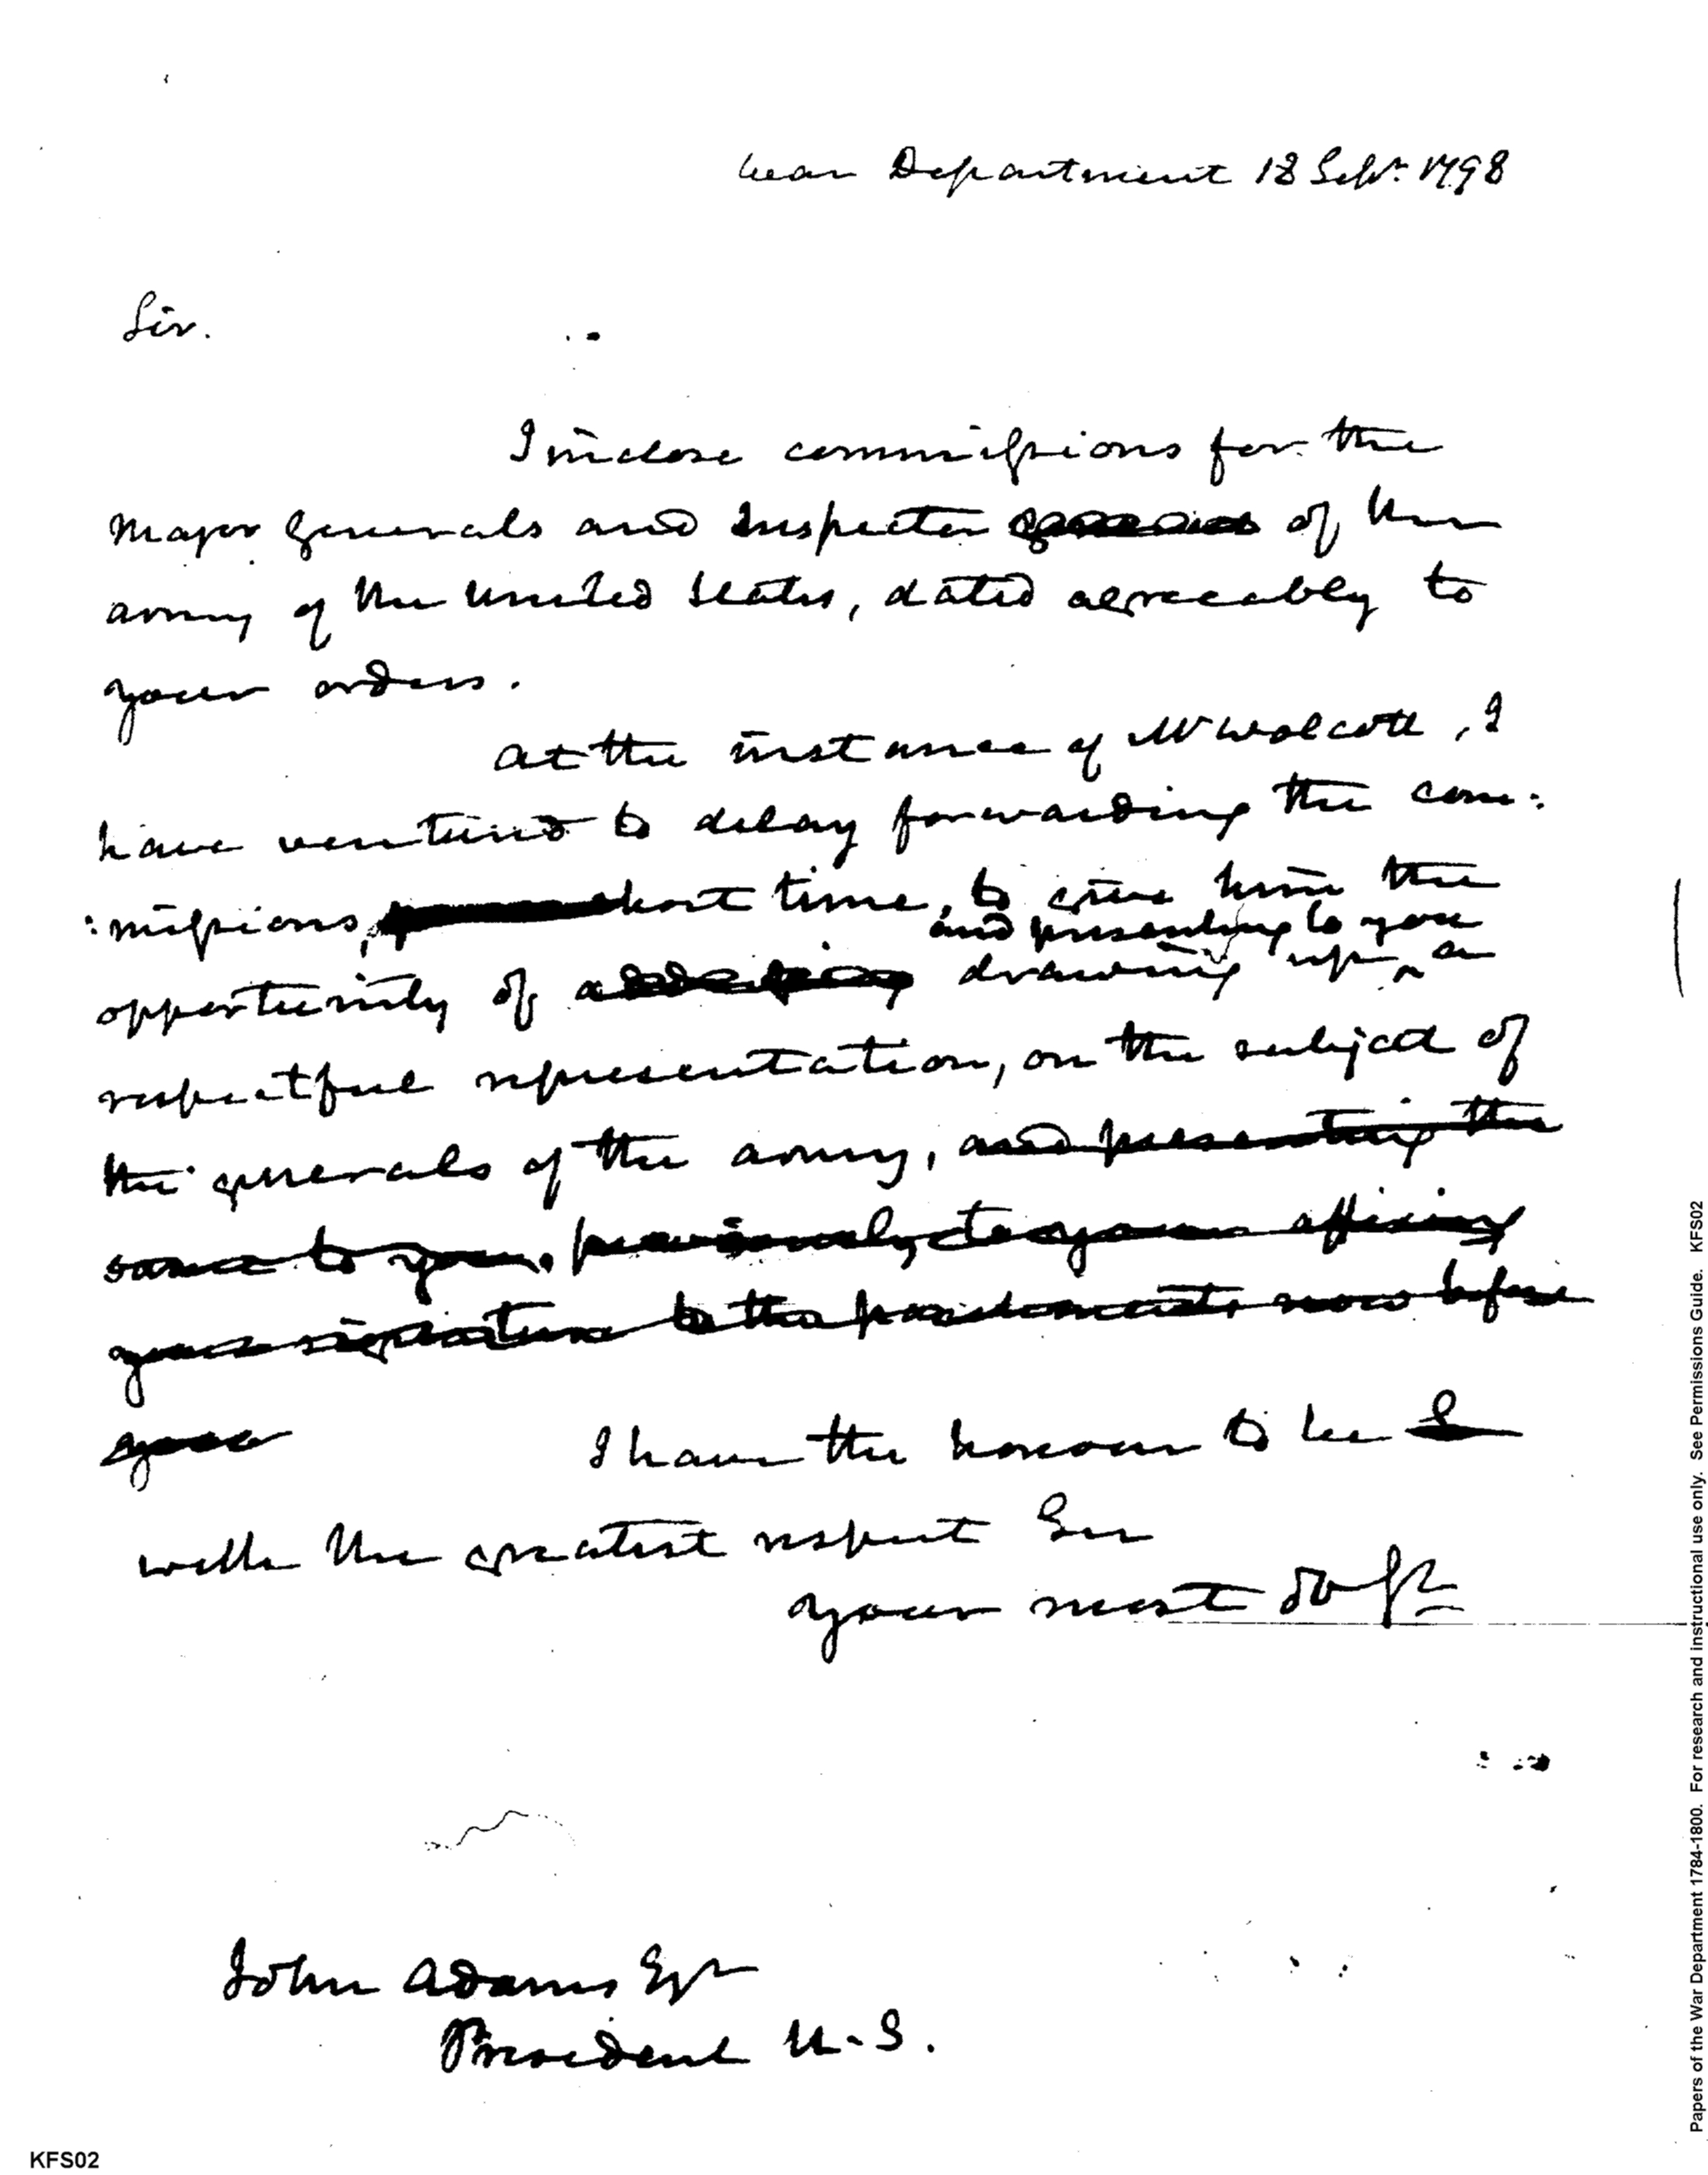 War Department 18 Sept. 1798
Sir.
I inclose commissions for the
Major Generals and Inspector of the
army of the United States, dated agreeably to
your orders.
At the instance of Mr Wolcott, I
have ventured to delay forwarding the com:
:missions, short time, to give him the
and presenting to you
opportunity of drawing up ^ a
respectful representation, on the subject of
the generals of the army, and presenting the
same to you, previously to your affixing
your signature to the parchments now before
you I have the honour to be
with the greatest respect Sir
your most
John Adams Esqr
President U.S.
KFS02
Papers of the War Department 1784-1800. For research and instructional use only. See Permissions Guide. KFS02